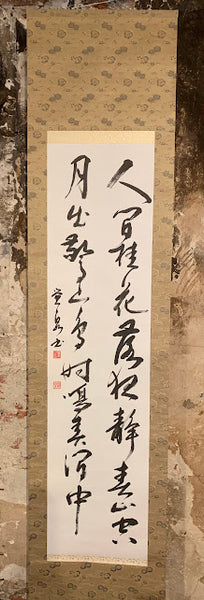 人間桂花落夜静春山空
月出驚山鳥時鳴春澗中
書